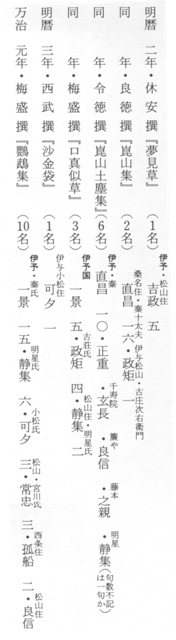 明暦 二年・休安 撰『夢見草』 (1名) 伊予・松山住 吉政 五
同 年・良徳 撰『崑山集』 (2名) 桑名住・秦十太夫 直昌 一六・伊予松山・古庄次右衛門 政矩 一
同 年・令徳 撰『崑山土塵集』 (6名) 伊予・秦 直昌 一〇・正重・千寿院 玄長・簾や 良信・藤本 之親・明星 静集(句数不記は一句か)
同 年・梅盛 撰『口真似草』 (3名) 伊予国 一景 五・古荘氏 政矩 四・松山住・明星氏 静集 二
明暦 三年・西武 撰『沙金袋』 (1名) 伊与小松住 可夕 一
万治 元年・梅盛 撰『鸚鵡集』 (10名) 伊予・秦氏 一景 一五・明星氏 静集 六・小松氏 可夕 三・松山・宮川氏 常忠 三・西条住 孤船 二・松山住 良信